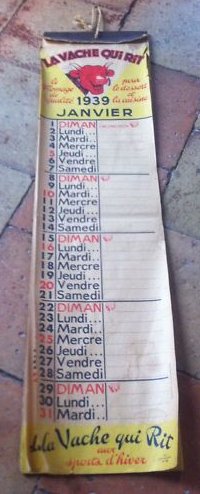 LA VACHE QUI RIT
le fromage de qualité
pour le dessert et la cuisine
1939
JANVIER
1 DIMAN
2 Lundi...
3 Mardi..
4 Mercre
5 Jeudi...
6 Vendre
7 Samedi
8 DIMAN
9 Lundi...
10 Mardi..
11 Mercre
12 Jeudi...
13 Vendre
14 Samedi
15 DIMAN
16 Lundi...
17 Mardi..
18 Mercre
19 Jeudi...
20 Vendre
21 Samedi
22 DIMAN
23 Lundi...
24 Mardi..
25 Mercre
26 Jeudi...
27 Vendre
28 Samedi
29 DIMAN
30 Lundi...
31 Mardi..
La Vache qui Rit
aux
sports d'hiver